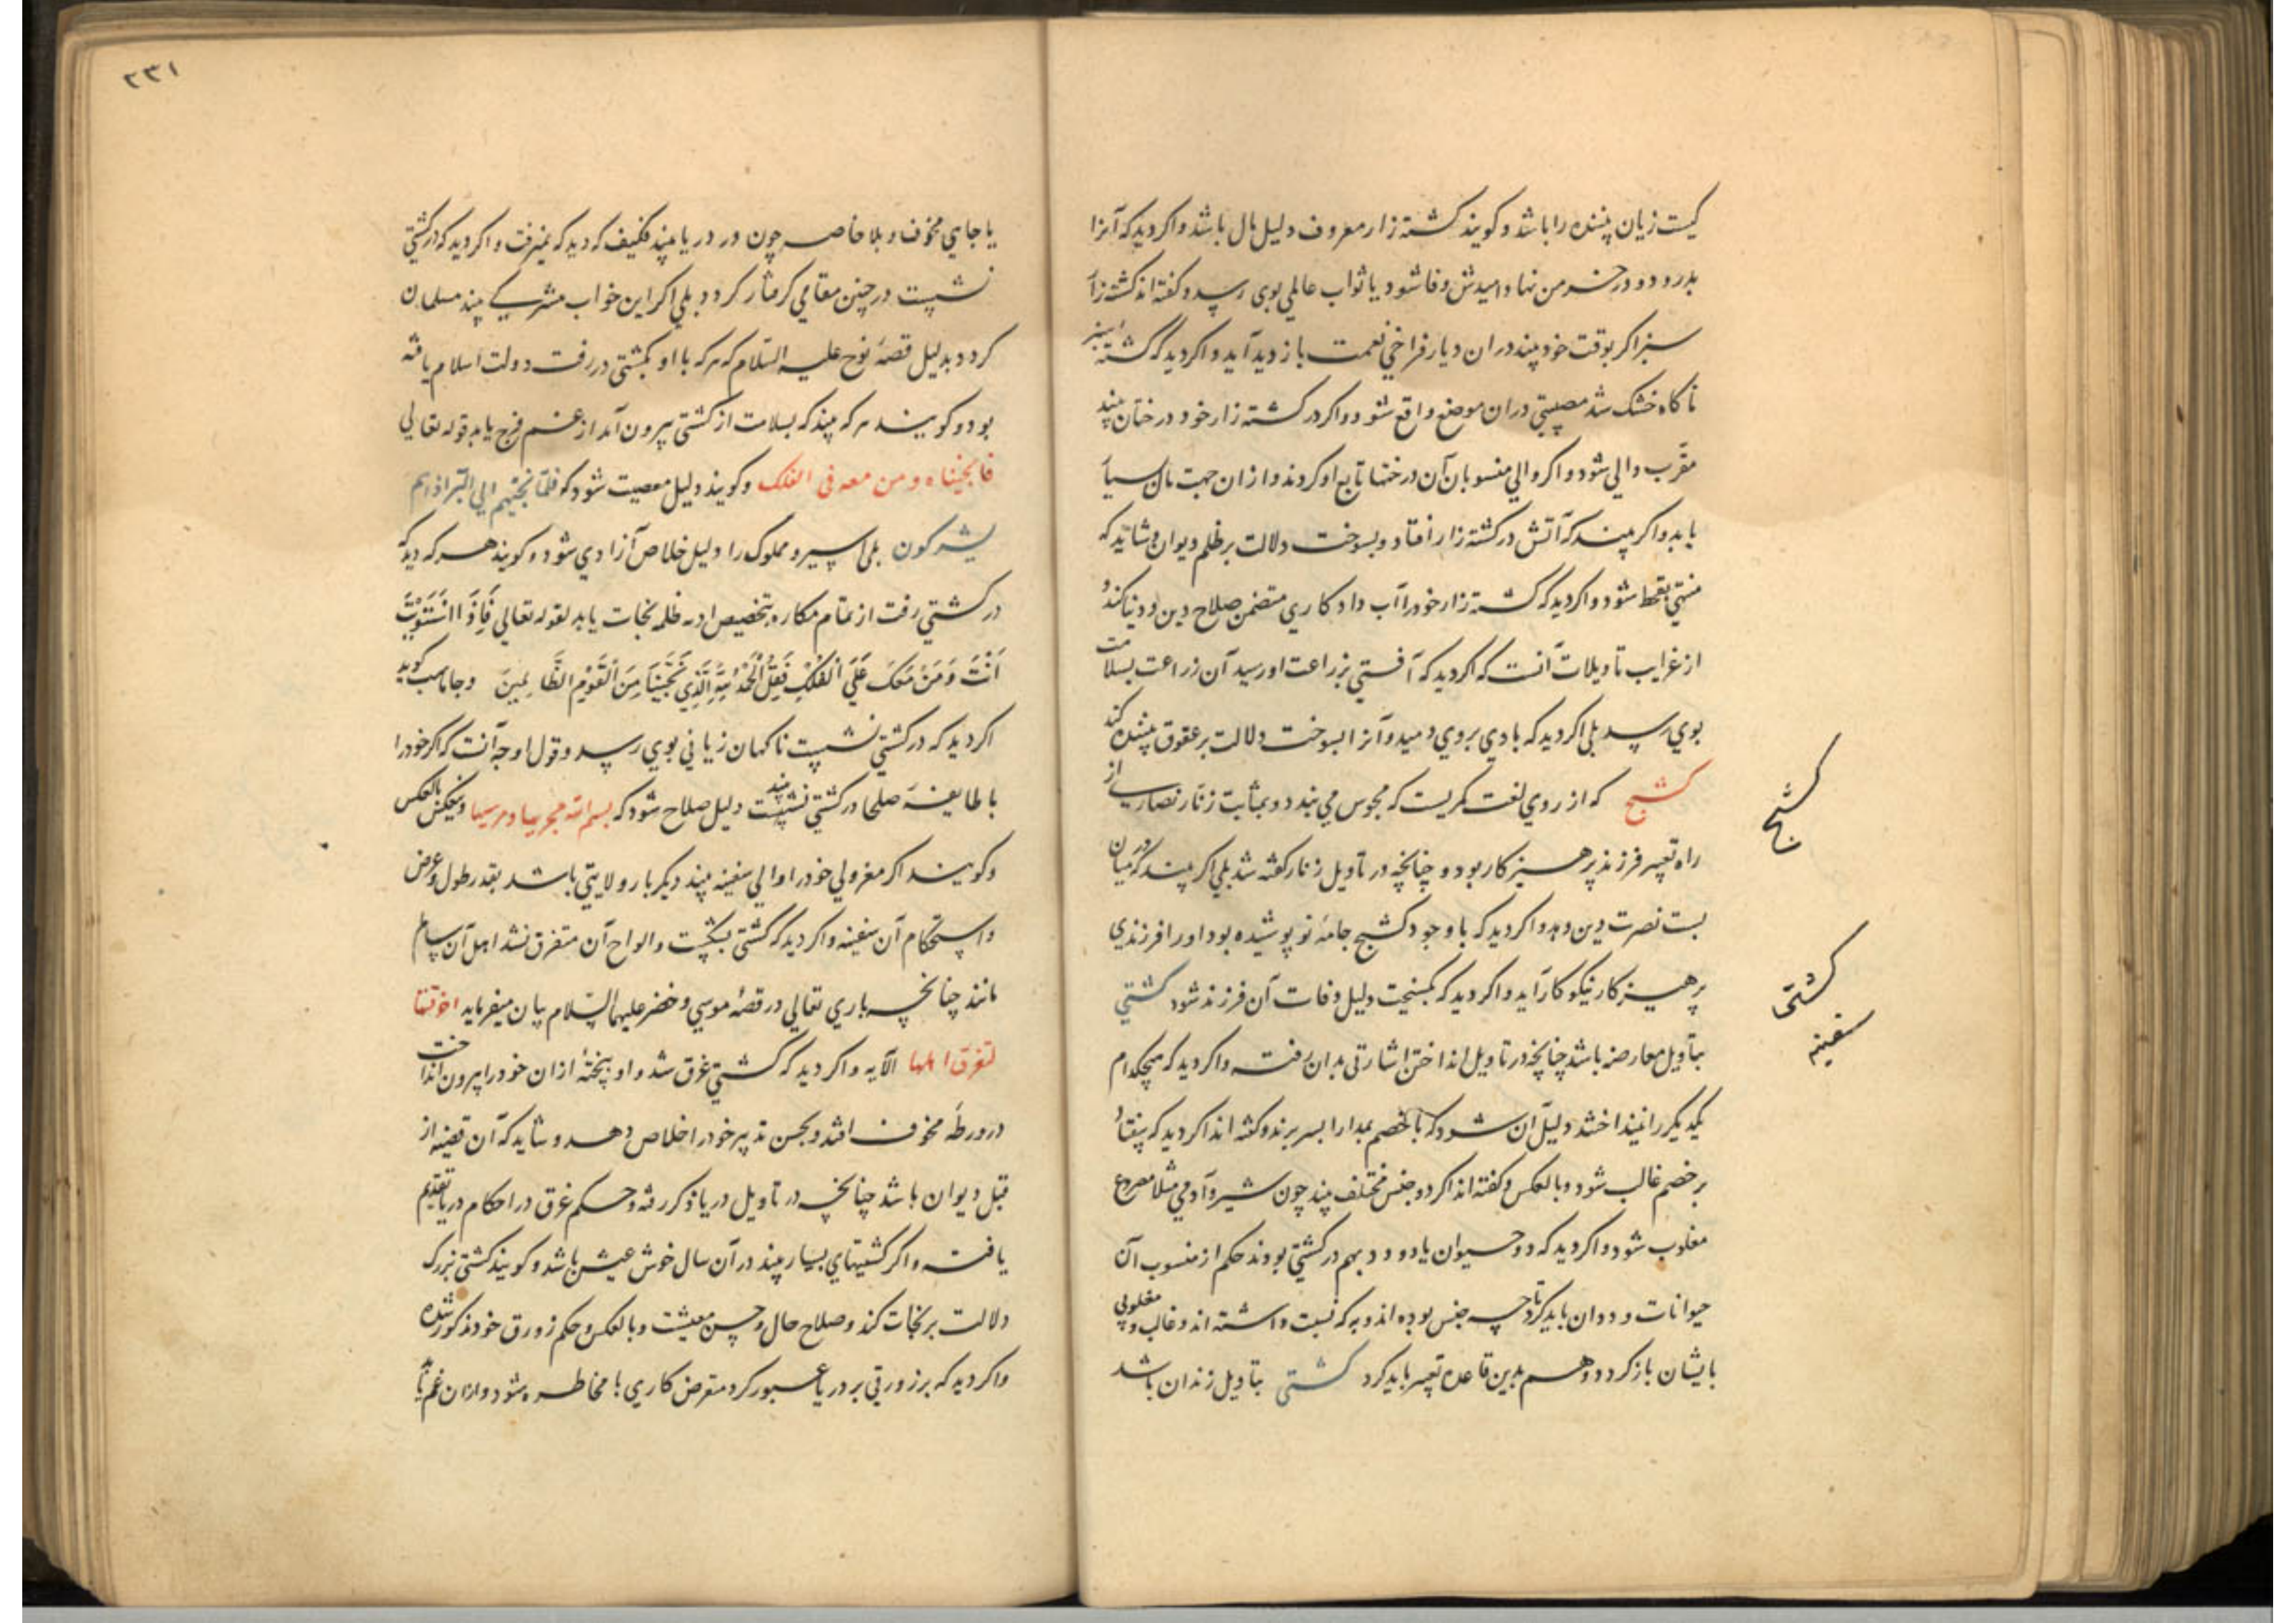 کیست زیان بیننده را باشد و کویند کشته زار معروف دلیل مال باشد و اکر دید که آنرا
بدرود و در خرمن نهاد امیدش وفا شود یا ثواب عالمی بوی رسد و کفته اند کشته زار
سبز اکر بوقت خود بیند دران دیار فراخی نعمت بازدید آید و اکر دید که کشته سبز
ناکاه خشک شد مصیبتی دران موضع واقع شود و اکر در کشته زار خود درختان بیند
مقرب والی شود و اکر والی منسوبان آن درختها تابع او کردند و ازان جهت مال بسیار
یابد و اکر بیند که آتش در کشته زار افتاد و بسوخت دلالت بر ظلم دیوان و شاید که
منتهی بقحط شود و اکر دید که کشته زار خود را آب داد کاری متضمن صلاح دین و دنیا کند و
از غرایب تاویلات آنست که اکر دید که آفتی بزراعت او رسید آن زراعت بسلامت
بوی رسد بلی اکر دید که بادی بروی دمید و آنرا بسوخت دلالت بر عقوق بیننده کند
کشیج که از روی لغت کمریست که مجوس می بندد و بمثابت زنار نصاری از
راه تعبیر فرزند پرهیزکار بود و چنانچه در تاویل زنار کفته شد بلی اکر بیند که در میان
بست نصرت دین دهد و اکر دید که با وجود کشیج جامهٔ نو پوشیده بود او را فرزندی
پرهیزکار نیکوکار آید و اکر دید که بکسیخت دلیل وفات آن فرزند شود کشتی
بتاویل معارضه باشد چنانچه در تاویل انداختن اشارتی بدان رفت و اکر دید که هیچکدام
یکدیکر را نینداختند دلیل آن شود که با خصم بمدارا بسر برند و کفته اند اکر دید که بیفتاد
بر خصم غالب شود و بالعکس و کفته اند اکر دو جنس مختلف بیند چون شیر و آدمی مثلا مصروع
مغلوب شود و اکر دید که دو حیوان یا دو دد بهم در کشتی بودند حکم از منسوب آن
حیوانات و ددان باید کرد تا چه جنس بوده اند و به که نسبت داشته اند و غالب و مغلوبی
بایشان باز کردد و هم بدین قاعده تعبیر باید کرد کشتی بتاویل زندان باشد
کشیج
کشتی
سفینه
۲۳۱
یا جای مخوف و بلا خاصه چون در دریا بیند فکیف که دید که نمیرفت و اکر دید که در کشتی
نشست در چنین مقامی کرفتار کردد بلی اکر این خواب مشرکی بیند مسلمان
کردد بدلیل قصهٔ نوح علیه السلام که هر که با او بکشتی در رفت دولت اسلام یافته
بود و کویند هر که بیند که بسلامت از کشتی بیرون آمد از غم فرج یابد قوله تعالی
فانجیناه و من معه فی الفلک و کویند دلیل معصیت شود که فلما نجیهم الی البر اذا هم
یشرکون بلی اسیر و مملوک را دلیل خلاص آزادی شود و کویند هر که دید که
در کشتی رفت از تمام مکاره بتخصیص از ظلمه نجات یابد لقوله تعالی فَاِذَا اسْتَوَیْتَ
اَنْتَ وَمَنْ مَعَکَ عَلَی الْفُلْکِ فَقُلِ الْحَمْدُ لِلّٰهِ الَّذِی نَجّٰینَا مِنَ الْقَوْمِ الظَّالِمِینَ و جاماسب کوید
اکر دید که در کشتی نشست ناکهان زیانی بوی رسد و قول اوجه آنست که اکر خود را
با طایفهٔ صلحا در کشتی نشسته بیند دلیل صلاح شود که بسم الله مجریها و مرسیها و بعکس بالعکس
و کویند اکر معزولی خود را والی سفینه بیند دیکر بار ولایتی باشد بقدر طول و عرض
و استحکام آن سفینه و اکر دید که کشتی بشکست و الواح آن متفرق نشد اهل آن سالم
مانند چنانچه باری تعالی در قصهٔ موسی و خضر علیهما السلام بیان میفرماید اخرقتها
لتغرق اهلها الآیه و اکر دید که کشتی غرق شد و او بتختهٔ ازان خود را بیرون انداخت
در ورطهٔ مخوف افتد و بحسن تدبیر خود را خلاص دهد و شاید که آن قضیه از
قبل دیوان باشد چنانچه در تاویل دریا ذکر رفته و حکم غرق در احکام دریا تقدیم
یافت و اکر کشتیهای بسیار بیند در آن سال خوش عیش باشد و کویند کشتی بزرک
دلالت بر نجات کند و صلاح حال و حسن معیشت و بالعکس و حکم زورق خود مذکور شده
و اکر دید که بر زورقی بر دریا عبور کرد متعرض کاری با مخاطره شود و ازان غم یابد